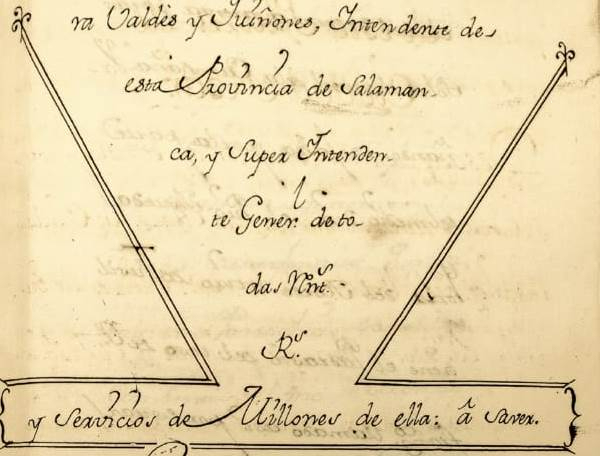 ra Valdès y Quiñones, Intendente de
esta Provincia de Salaman-
ca, y Super Intenden-
te Gener.l de to-
das
R.s
y Servicios de Millones de ella: â saver.